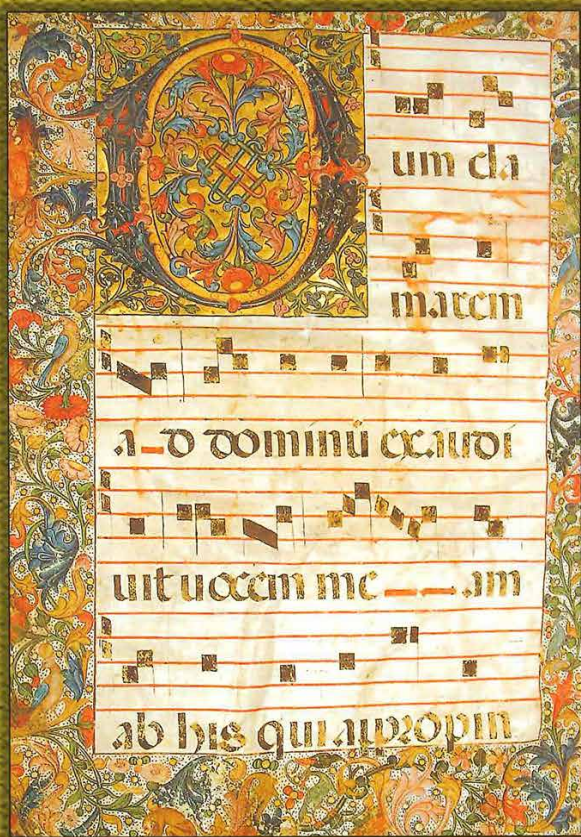 Dum cla
marem
a_d dominū exaudi
uit uocem me_ _am
ab his qui appropin